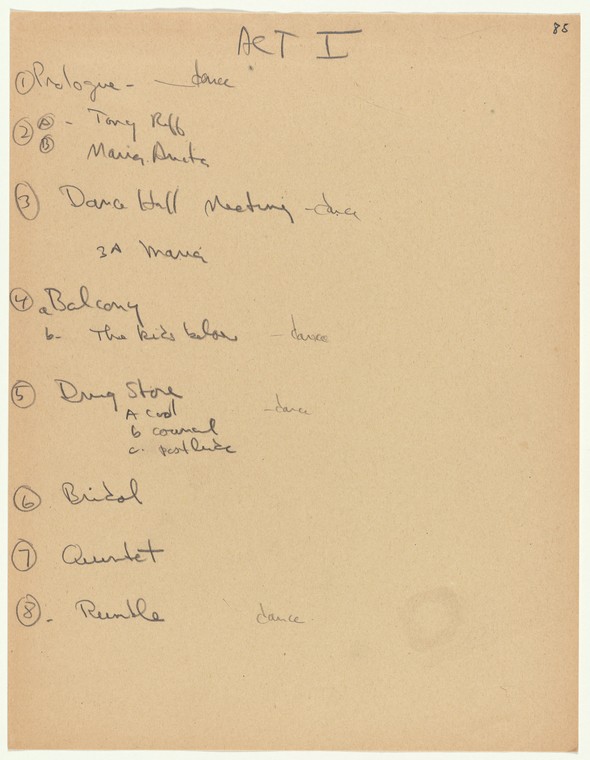 85
ACT I
① Prologue - — dance
② Ⓐ - Tony Riff
Ⓑ Maria. Anita
③ Dance Hall Meeting - dance
3A Maria
④ a Balcony
b- The kids below - dance
⑤ Drug Store - dance
A cool
b council
c. postlude
⑥ Bridal
⑦ Quintet
⑧ - Rumble dance